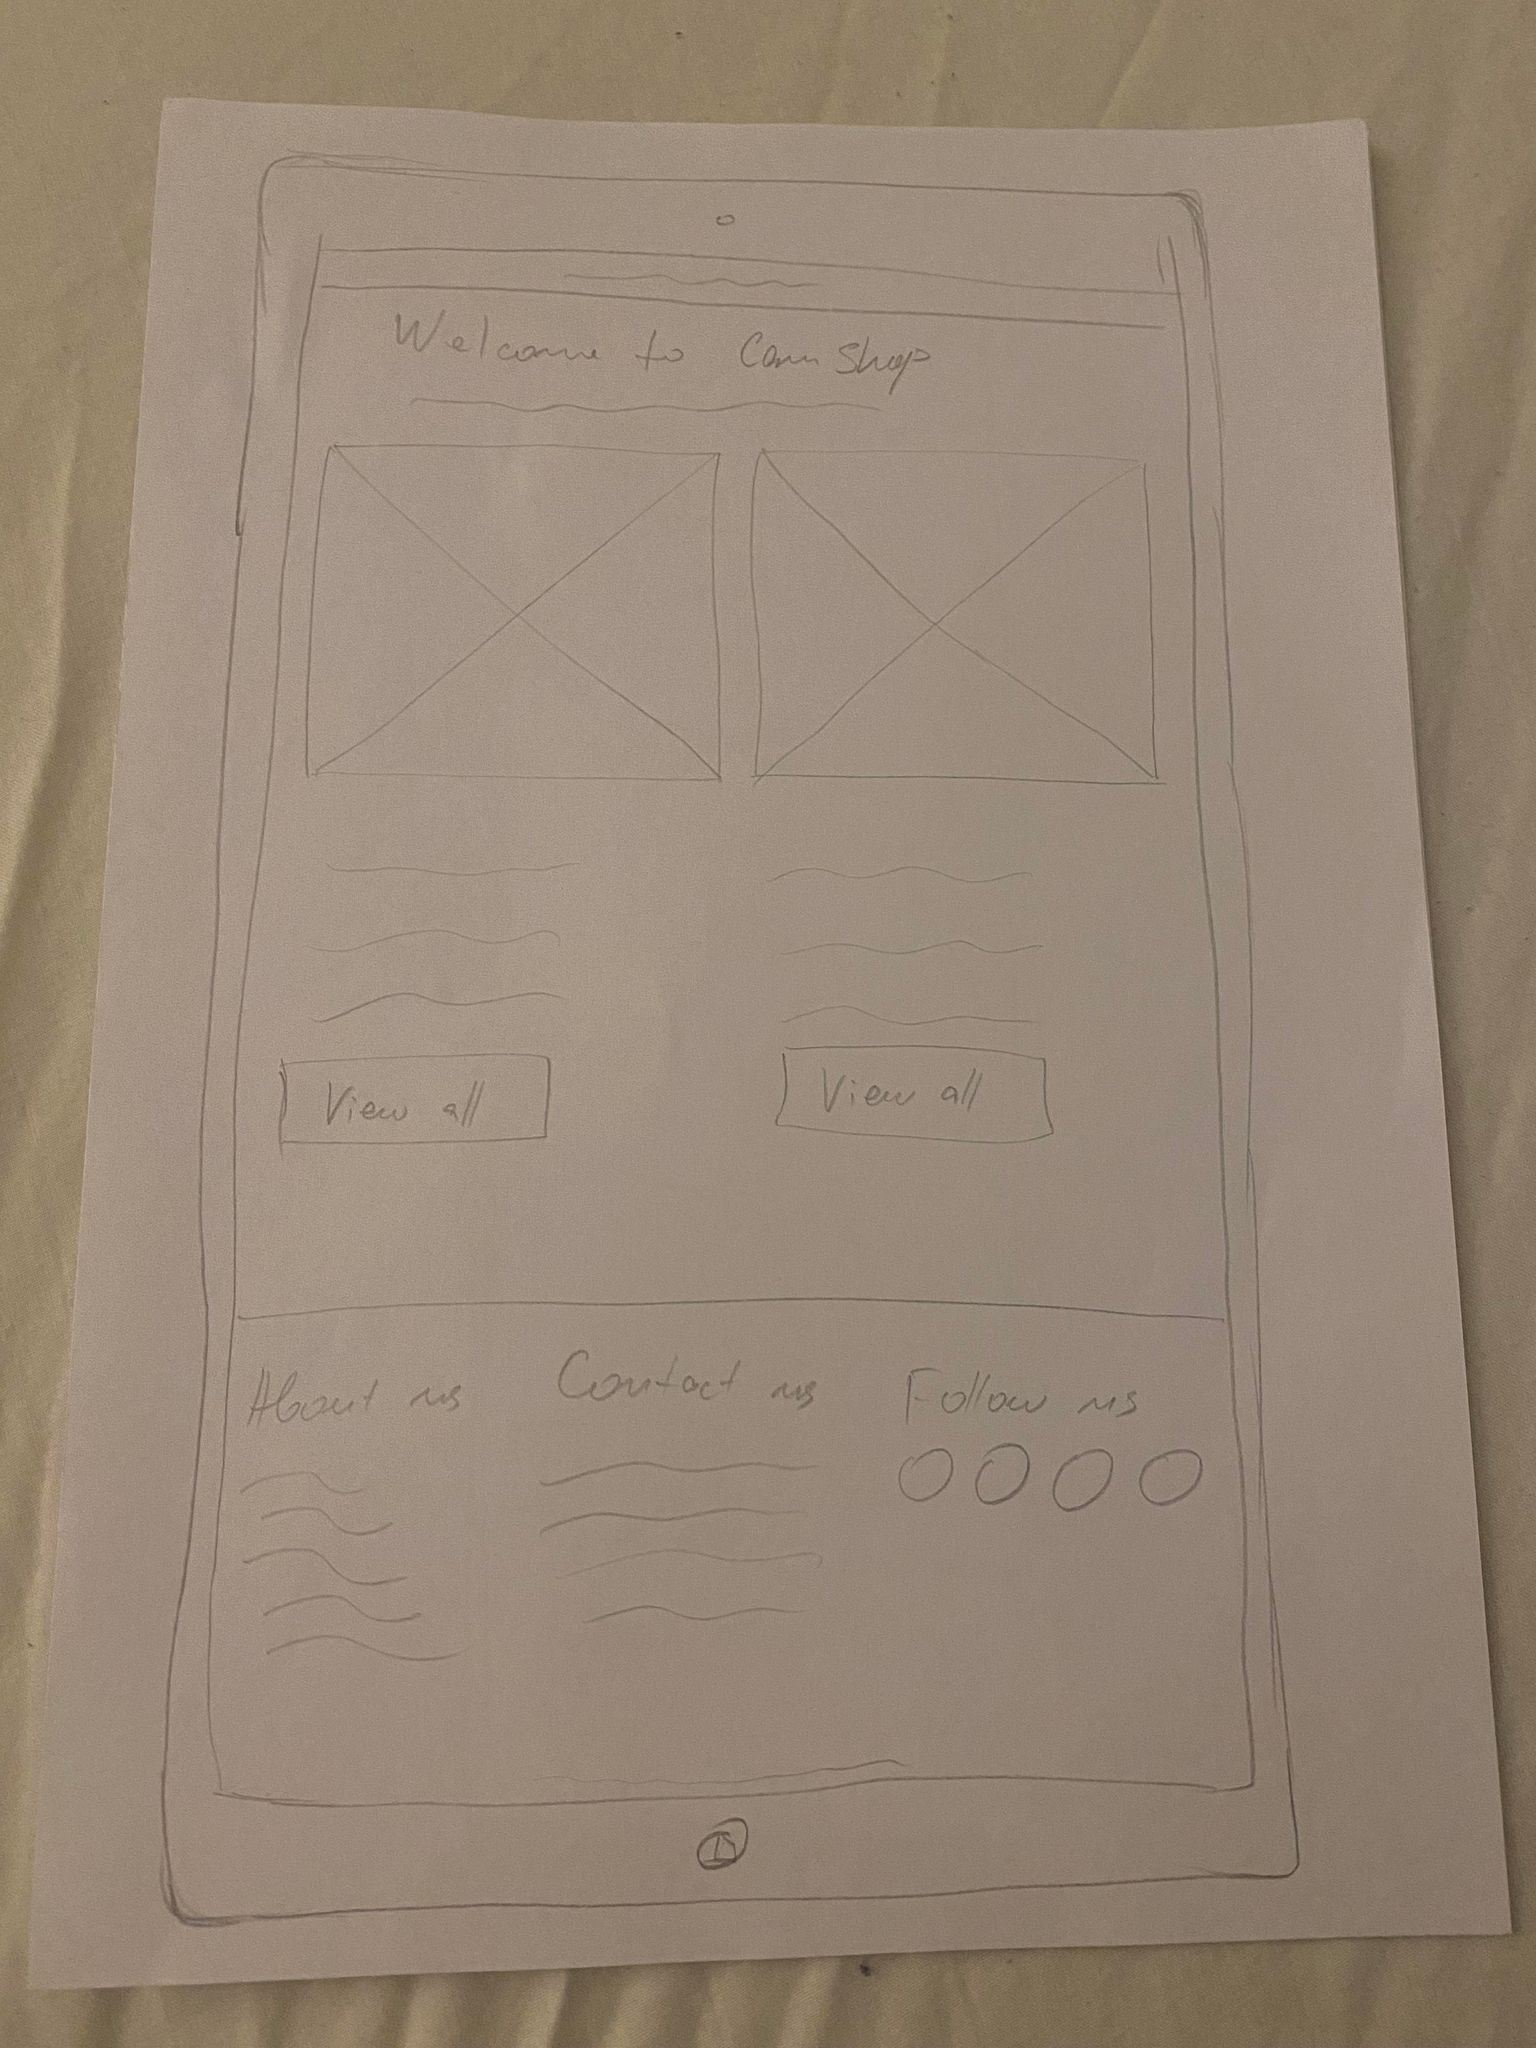 Welcome to Cam Shop
View all View all
About us Contact us Follow us